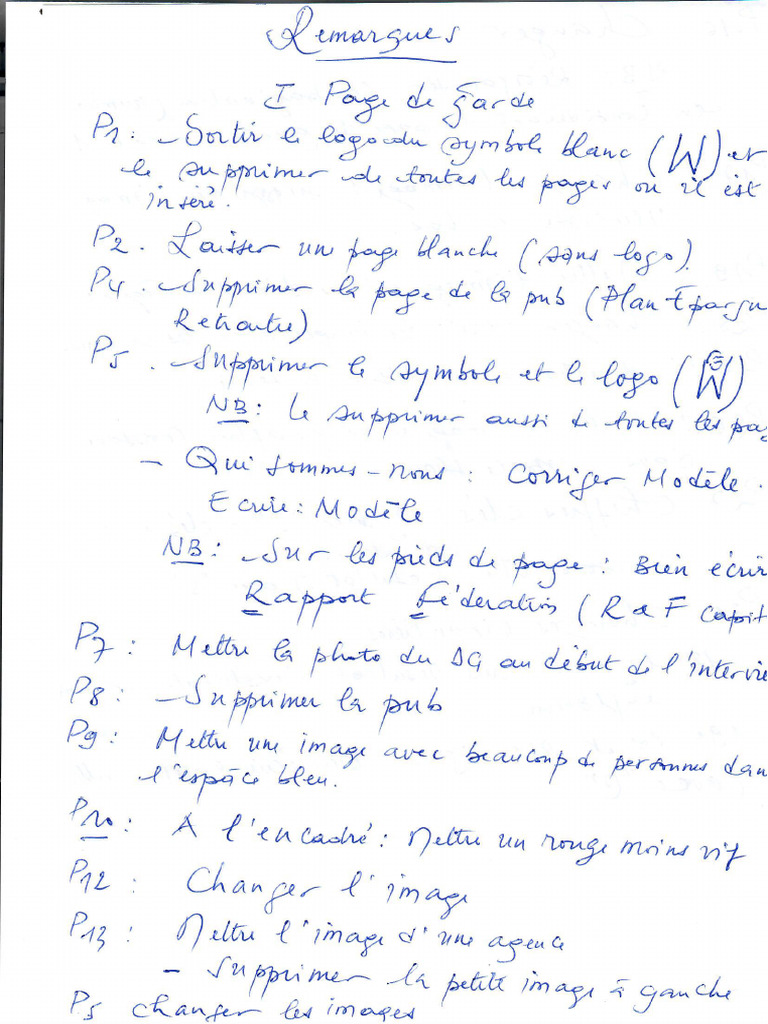 Remarques
I Page de Garde
P1: - Sortir le logo du symbole blanc (W) et
le supprimer de toutes les pages où il est
inséré.
P2. Laisser une page blanche (sans logo).
P4. - Supprimer la page de la pub (Plan Epargn
Retraite)
P5. - Supprimer le symbole et le logo (W)
NB: Le supprimer aussi de toutes les pag
- Qui sommes-nous: Corriger Modèle.
Ecrire: Modèle
NB: - Sur les pieds de page: Bien écrir
Rapport Fédération (R et F Capit
P7: Mettre la photo du DG au début de l'intervie
P8: - Supprimer la pub
P9: Mettre une image avec beaucoup de personnes dan
l'espace bleu.
P10: A l'encadré: Mettre un rouge moins vif
P12: Changer l'image
P13: Mettre l'image d'une agence
- Supprimer la petite image à gauche
P5 changer les images